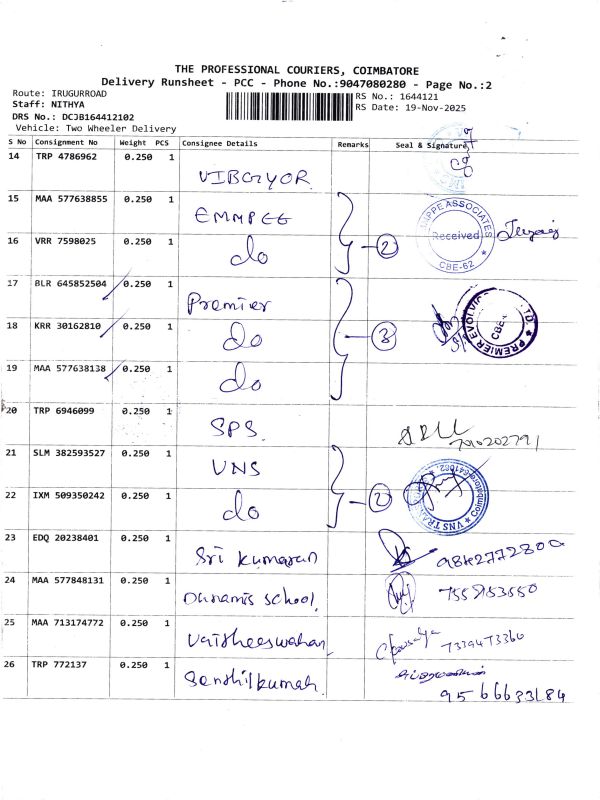 THE PROFESSIONAL COURIERS, COIMBATORE
Delivery Runsheet - PCC - Phone No.:9047080280 - Page No.:2
Route: IRUGURROAD
RS No.: 1644121
Staff: NITHYA
RS Date: 19-Nov-2025
DRS No.: DC3B164412102
Vehicle: Two Wheeler Delivery
S No Consignment No Weight PCS Consignee Details Remarks Seal & Signature
14 TRP 4786962 0.250 1 VIBGYOR
15 MAA 577638855 0.250 1 EMMPEE
16 VRR 7598025 0.250 1 do 2
ASSOCIATES Received CBE-62
17 BLR 645852504 0.250 1 Premier
18 KRR 30162810 0.250 1 do 3
PREMIER EVOLVICS CBE
19 MAA 577638138 0.250 1 do
20 TRP 6946099 0.250 1 SPS
21 SLM 382593527 0.250 1 VNS
22 IXM 509350242 0.250 1 do 2
VNS Coimbatore-641062
23 EDQ 20238401 0.250 1 Sri Kumaran 9842772800
24 MAA 577848131 0.250 1 Dunamis school,
25 MAA 713174772 0.250 1 Vaitheeswahan 7339473360
26 TRP 772137 0.250 1 Senthilkumar 9566633184